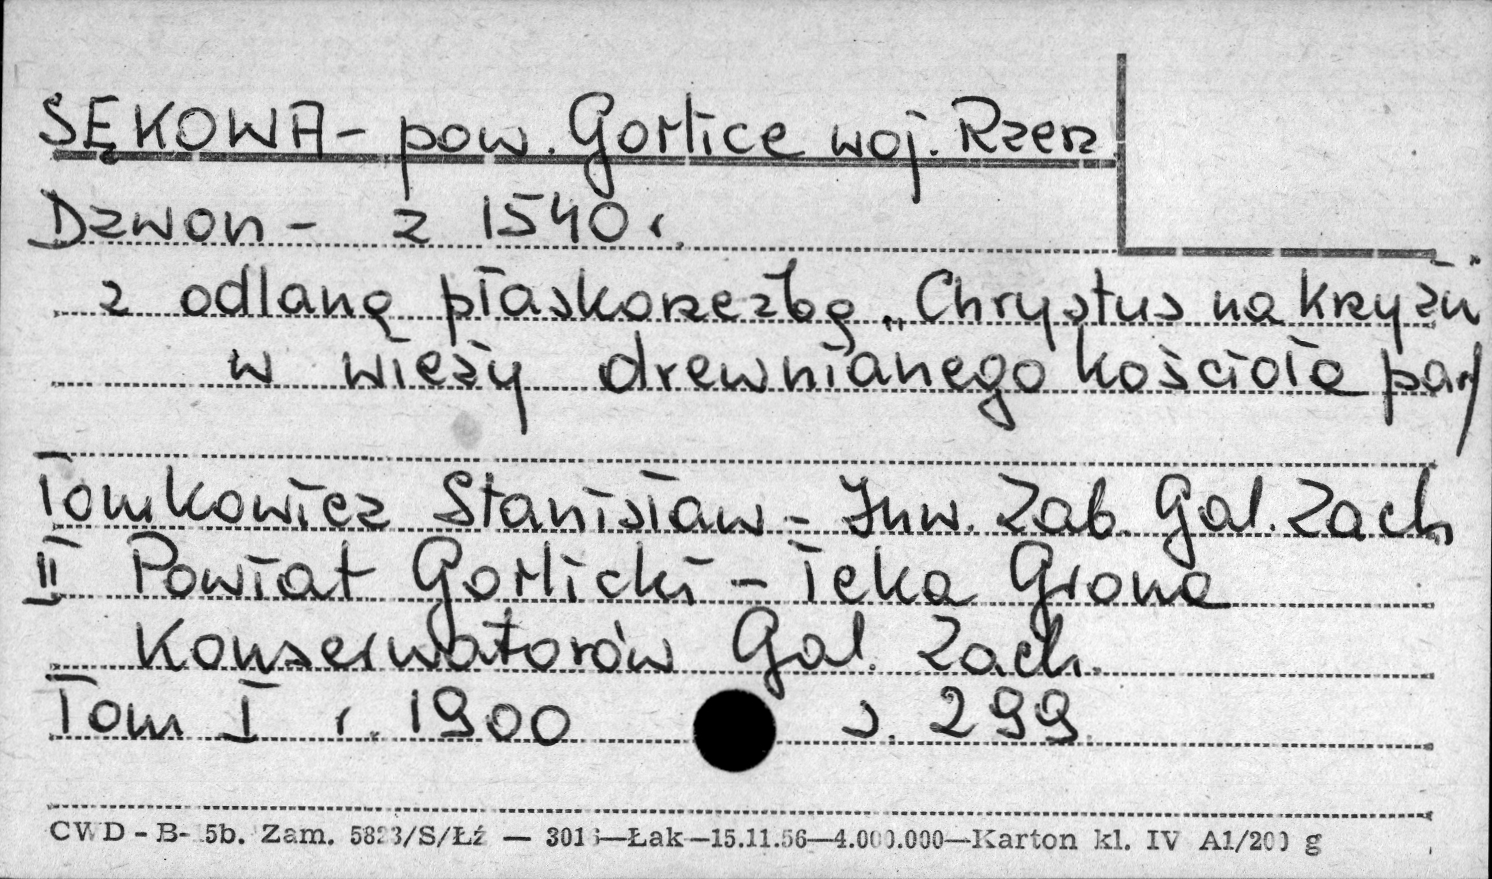 SĘKOWA - pow. Gorlice woj. Rzesz.
Dzwon - z 1540 r.
z odlaną płaskorzeźbą „Chrystus na krzyżu"
w wieży drewnianego kościoła par
Tomkowicz Stanisław - Inw. Zab. Gal. Zach
II Powiat Gorlicki - Teka Grona
Konserwatorów Gal. Zach.
Tom I r. 1900 s. 299.
CWD - B- 5b. Zam. 5823/S/Łź — 3016—Łak—15.11.56—4.000.000—Karton kl. IV A1/200 g